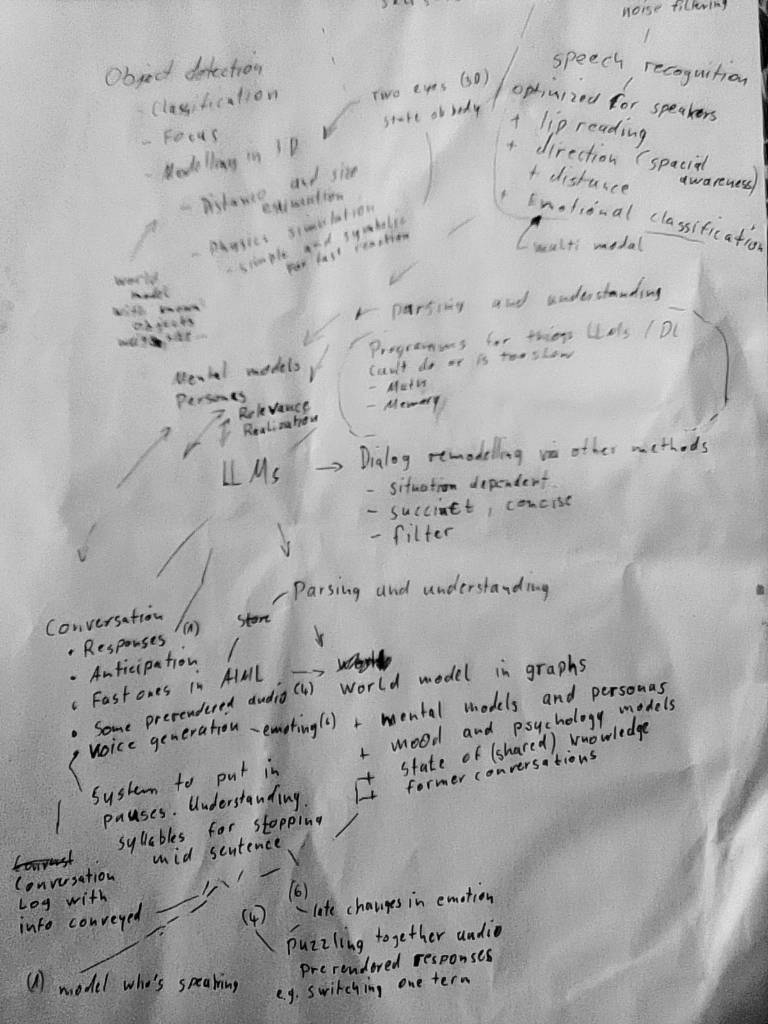 noise filtering
speech recognition
optimized for speakers
+ lip reading
+ direction (spacial
awareness)
+ distance
+ Emotional classification
multi modal
Object detection
- Classification
- Focus
- Modelling in 3D
- Distance and size
estimation
- Physics simulation
- simple and symbolic
for fast reaction
Two eyes (3D)
state of body
World
model
with known
objects
parsing and understanding
Programms for things LLMs / DL
can't do or is too slow
- Math
- Memory
Mental models
Personas
Relevance
Realization
LLMs → Dialog remodelling via other methods
- situation dependent
- succinct, concise
- filter
Parsing and understanding
store
Conversation
• Responses (1)
• Anticipation
• Fast ones in AIML
• Some prerendered audio (4)
• Voice generation - emoting (6)
World model in graphs
+ mental models and personas
+ mood and psychology models
+ state of (shared) knowledge
+ former conversations
System to put in
pauses. Understanding.
syllables for stopping
mid sentence
Conversation
Log with
info conveyed
(6)
late changes in emotion
(4)
puzzling together audio
prerendered responses
e.g. switching one term
(1) model who's speaking